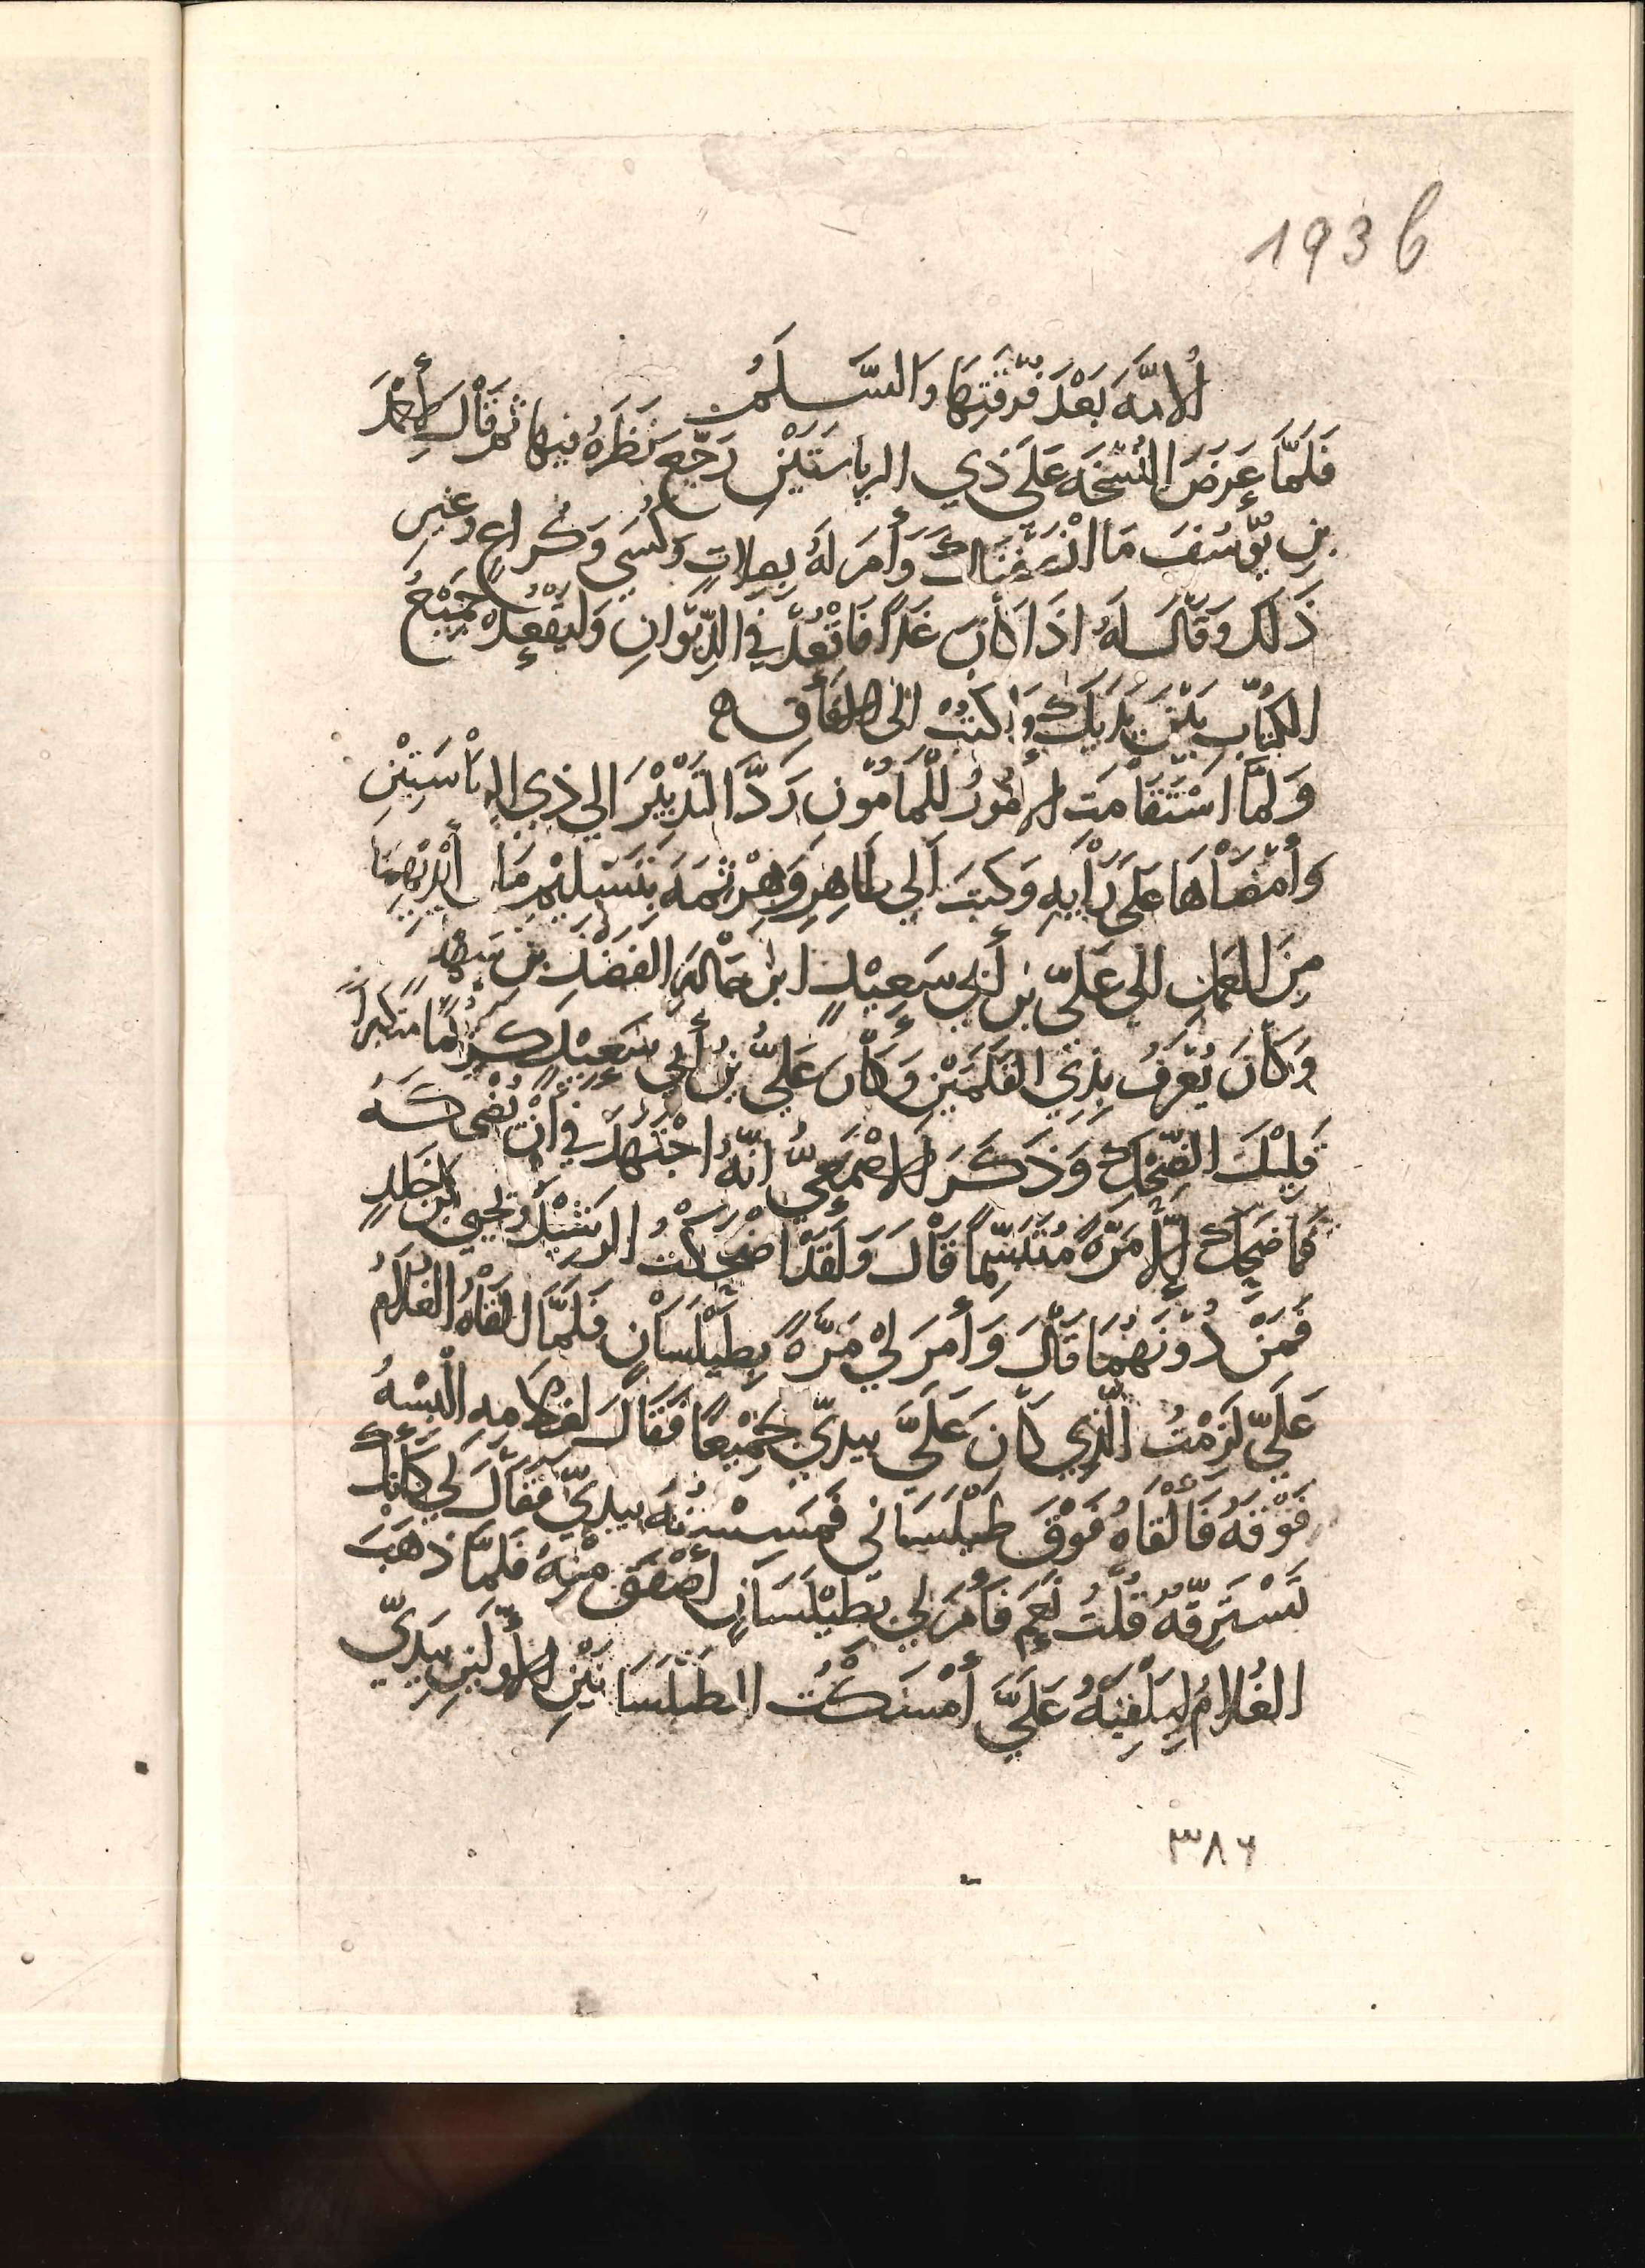 193b
الامّة بَعْدَ فُرْقَتِهَا وَالسَّلَمُ
فَلَمَّا عَرَضَ النُّسْخَةَ عَلَى ذِي الرِيَاسَتَيْنِ رَجَّعَ نَظَرَهُ فِيهَا ثُمَّ قَالَ لِأَحْمَدَ
بْنِ يُوسُفَ مَا انْصَفْنَاكَ وَأَمَرَ لَهُ بِصِلَاتٍ وَكُسًى وَكُرَاعٍ وَغَيْرِ
ذَلِكَ وَقَالَ لَهُ اذَا كَانَ غَدًا فَاقْعُدْ فِي الدِّيْوَانِ وَلْيَقْعُدْ جَمِيْعُ
الكُتَّابِ بَيْنَ يَدَيْكَ وَاكْتُبْ الَى الآفَاقِ
وَلَمَّا اسْتَقَامَتِ الأُمُورُ لِلْمَأمُوْنِ رَدَّ التَدْبِيْرَ الي ذِي الرِيَاسَتَيْنِ
وَأَمْضَاهَا عَلَى رَأْيِهِ وَكَتَبَ الي طَاهِرٍ وَهَرْثَمَةَ بِتَسْلِيْمِ مَا بِأَيْدِيْهِمَا
مِنَ العَمَلِ الى عَلِيّ بْنِ أَبِي سَعِيْدٍ ابْنِ خَالَةِ الفَضْلِ بْنِ سَهْلٍ
وَكَانَ يُعْرَفُ بِذِي القَلَمَيْنِ وَكَانَ عَلِيُّ بْنُ أَبِي سَعِيْدٍ كَرِيْمًا مُتَكَبِّرًا
قَلِيْلَ الضَّحْكِ وَذَكَرَ الأَصْمَعِيُّ انَّهُ اجْتَهَدَ فِي أَنْ يُضْحِكَهُ
فَمَا ضَحِكَ إِلَّا مَرَّةً مُتَبَسِّمًا قَالَ وَلَقَدْ اضْحَكْتُ الرَشِيْدَ وَيَحْيَى بْنَ خَلِدٍ
فَمَنْ دُوْنَهُمَا قَالَ وَأَمَرَ لِيْ مَرَّةً بِطَيْلَسَانٍ فَلَمَّا القَاهُ الغُلَامُ
عَلَيّ لَزِمْتُ الَّذِي كَانَ عَلَيَّ بِيَدَيّ جَمِيْعًا فَقَالَ لِغُلَامِهِ الْبِسْهُ
فَوْقَهُ فَأَلْقَاهُ فَوْقَ طَيْلَسَانى فَمَسَسْتُهُ بِيَدَيّ فَقَالَ لِي كَأَنَّكَ
تَسْتَرِقّهُ قُلْتُ نَعَمْ فَأَمَرَ لِي بِطَيْلَسَانٍ أَصْفَقَ مِنْهُ فَلَمَّا ذَهَبَ
الغُلَامُ لِيُلْقِيَهُ عَلَيَّ أَمْسَكْتُ الطَيْلَسَانَيْنِ الأَوَّلَيْنِ بِيَدَيّ
٣٨٦